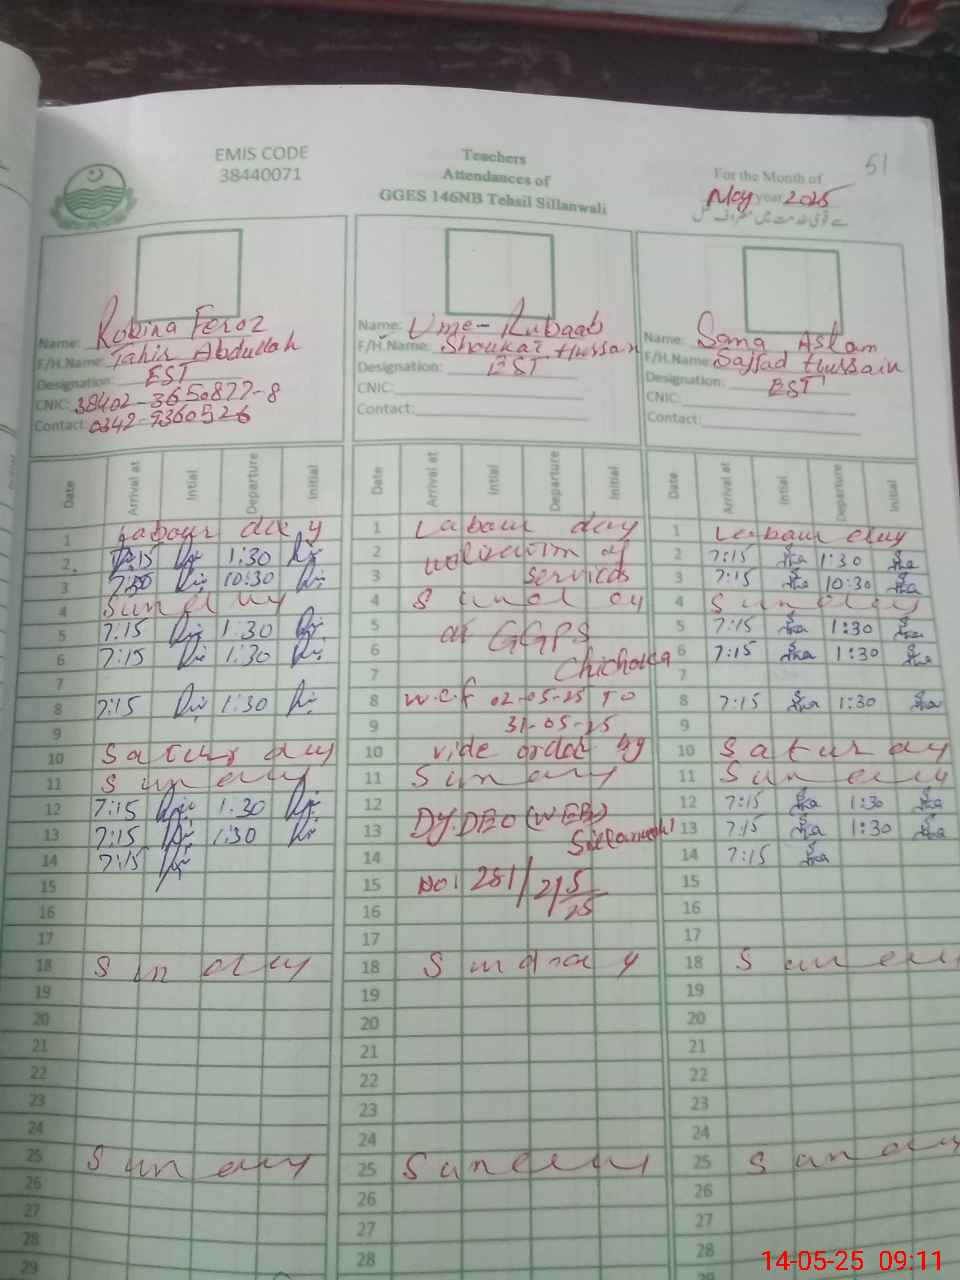 51
EMIS CODE
38440071
Teachers
Attendances of
GGES 146NB Tehsil Sillanwali
For the Month of
May year 2025
Name: Robina Feroz
F/H.Name: Tahir Abdullah
Designation: EST
CNIC: 38402-3650877-8
Contact: 0342-9360526
Name: Ume-Rubaab
F/H.Name: Shoukat Hussan
Designation: EST
CNIC:
Contact:
Name: Sang Aslam
F/H.Name: Sajjad Hussain
Designation: EST
CNIC:
Contact:
Date Arrival at Intial Departure Initial
1 Labour day
2. 7:15 1:30
3 10:30
4 Sunday
5 7:15 1:30
6 7:15 1:30
7
8 7:15 1:30
9
10 Saturday
11 Sunday
12 7:15 1:30
13 7:15 1:30
14 7:15
15
16
17
18 Sunday
19
20
21
22
23
24
25 Sunday
26
27
28
29
Date Arrival at Intial Departure Initial
1 Labour day
2 of
3 services
4 Sunday
5 at GGPS
6 
7
8 w.e.f 02-05-25 To
9 31-05-25
10 vide order by
11 Sunday
12 DY.DEO (WEE)
13 Sillanwali
14
15 No: 281/2/5/25
16
17
18 Sunday
19
20
21
22
23
24
25 Sunday
26
27
28
Date Arrival at Intial Departure Initial
1 Labour day
2 7:15 1:30
3 7:15 10:30
4 Sunday
5 7:15 1:30
6 7:15 1:30
7
8 7:15 1:30
9
10 Saturday
11 Sunday
12 7:15 1:30
13 7:15 1:30
14 7:15
15
16
17
18 Sunday
19
20
21
22
23
24
25 Sunday
26
27
28
29
14-05-25 09:11